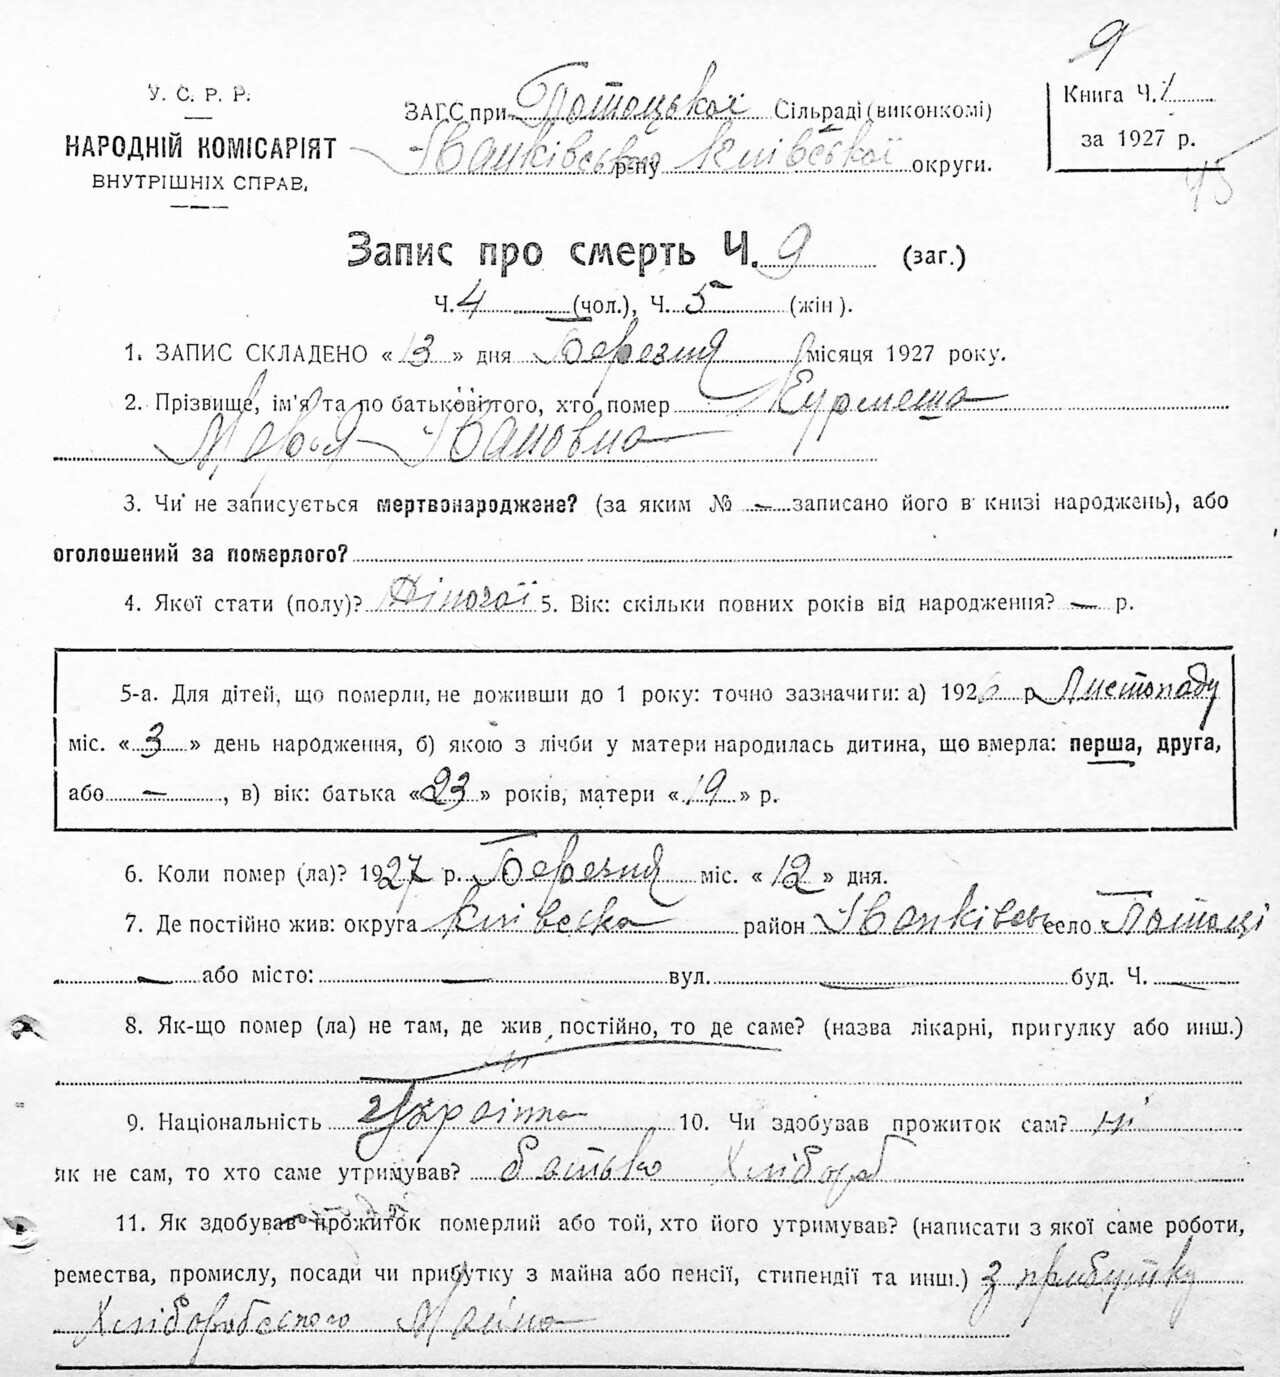 9
У. С. Р. Р.
НАРОДНІЙ КОМІСАРІЯТ
ВНУТРІШНІХ СПРАВ.
ЗАГС при Потоцької Сільраді (виконкомі)
Іванківського р-ну Київської округи.
Книга Ч. 1
за 1927 р.
Запис про смерть Ч. 9 (заг.)
Ч. 4 (чол.), Ч. 5 (жін).
1. ЗАПИС СКЛАДЕНО « 13 » дня Березня місяця 1927 року.
2. Прізвище, ім'я та по батькові того, хто помер Курмеша
Марья Івановна
3. Чи не записується мертвонароджене? (за яким № — записано його в книзі народжень), або
оголошений за померлого?
4. Якої стати (полу)? Жіночої 5. Вік: скільки повних років від народження? — р.
5-а. Для дітей, що померли, не доживши до 1 року: точно зазначити: а) 1926 р Листопаду
міс. « 3 » день народження, б) якою з лічби у матери народилась дитина, що вмерла: перша, друга,
або — , в) вік: батька « 23 » років, матери « 19 » р.
6. Коли помер (ла)? 1927 р. Березня міс. « 12 » дня.
7. Де постійно жив: округа Київська район Іванківськ село Потоці
— або місто: — вул. — буд. Ч. —
8. Як-що помер (ла) не там, де жив постійно, то де саме? (назва лікарні, притулку або инш.)
9. Національність Українка 10. Чи здобував прожиток сам? ні
як не сам, то хто саме утримував? батько Хлібороб
11. Як здобував прожиток померлий або той, хто його утримував? (написати з якої саме роботи,
ремества, промислу, посади чи прибутку з майна або пенсії, стипендії та инш.) З прибутку
Хліборобського Майна